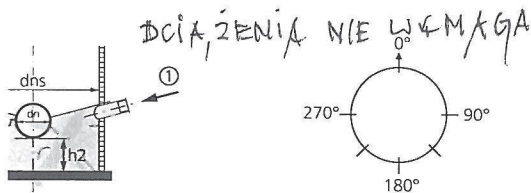 DCIĄŻENIA NIE WYMAGA
0°
dns
①
dn
270°
90°
h2
180°